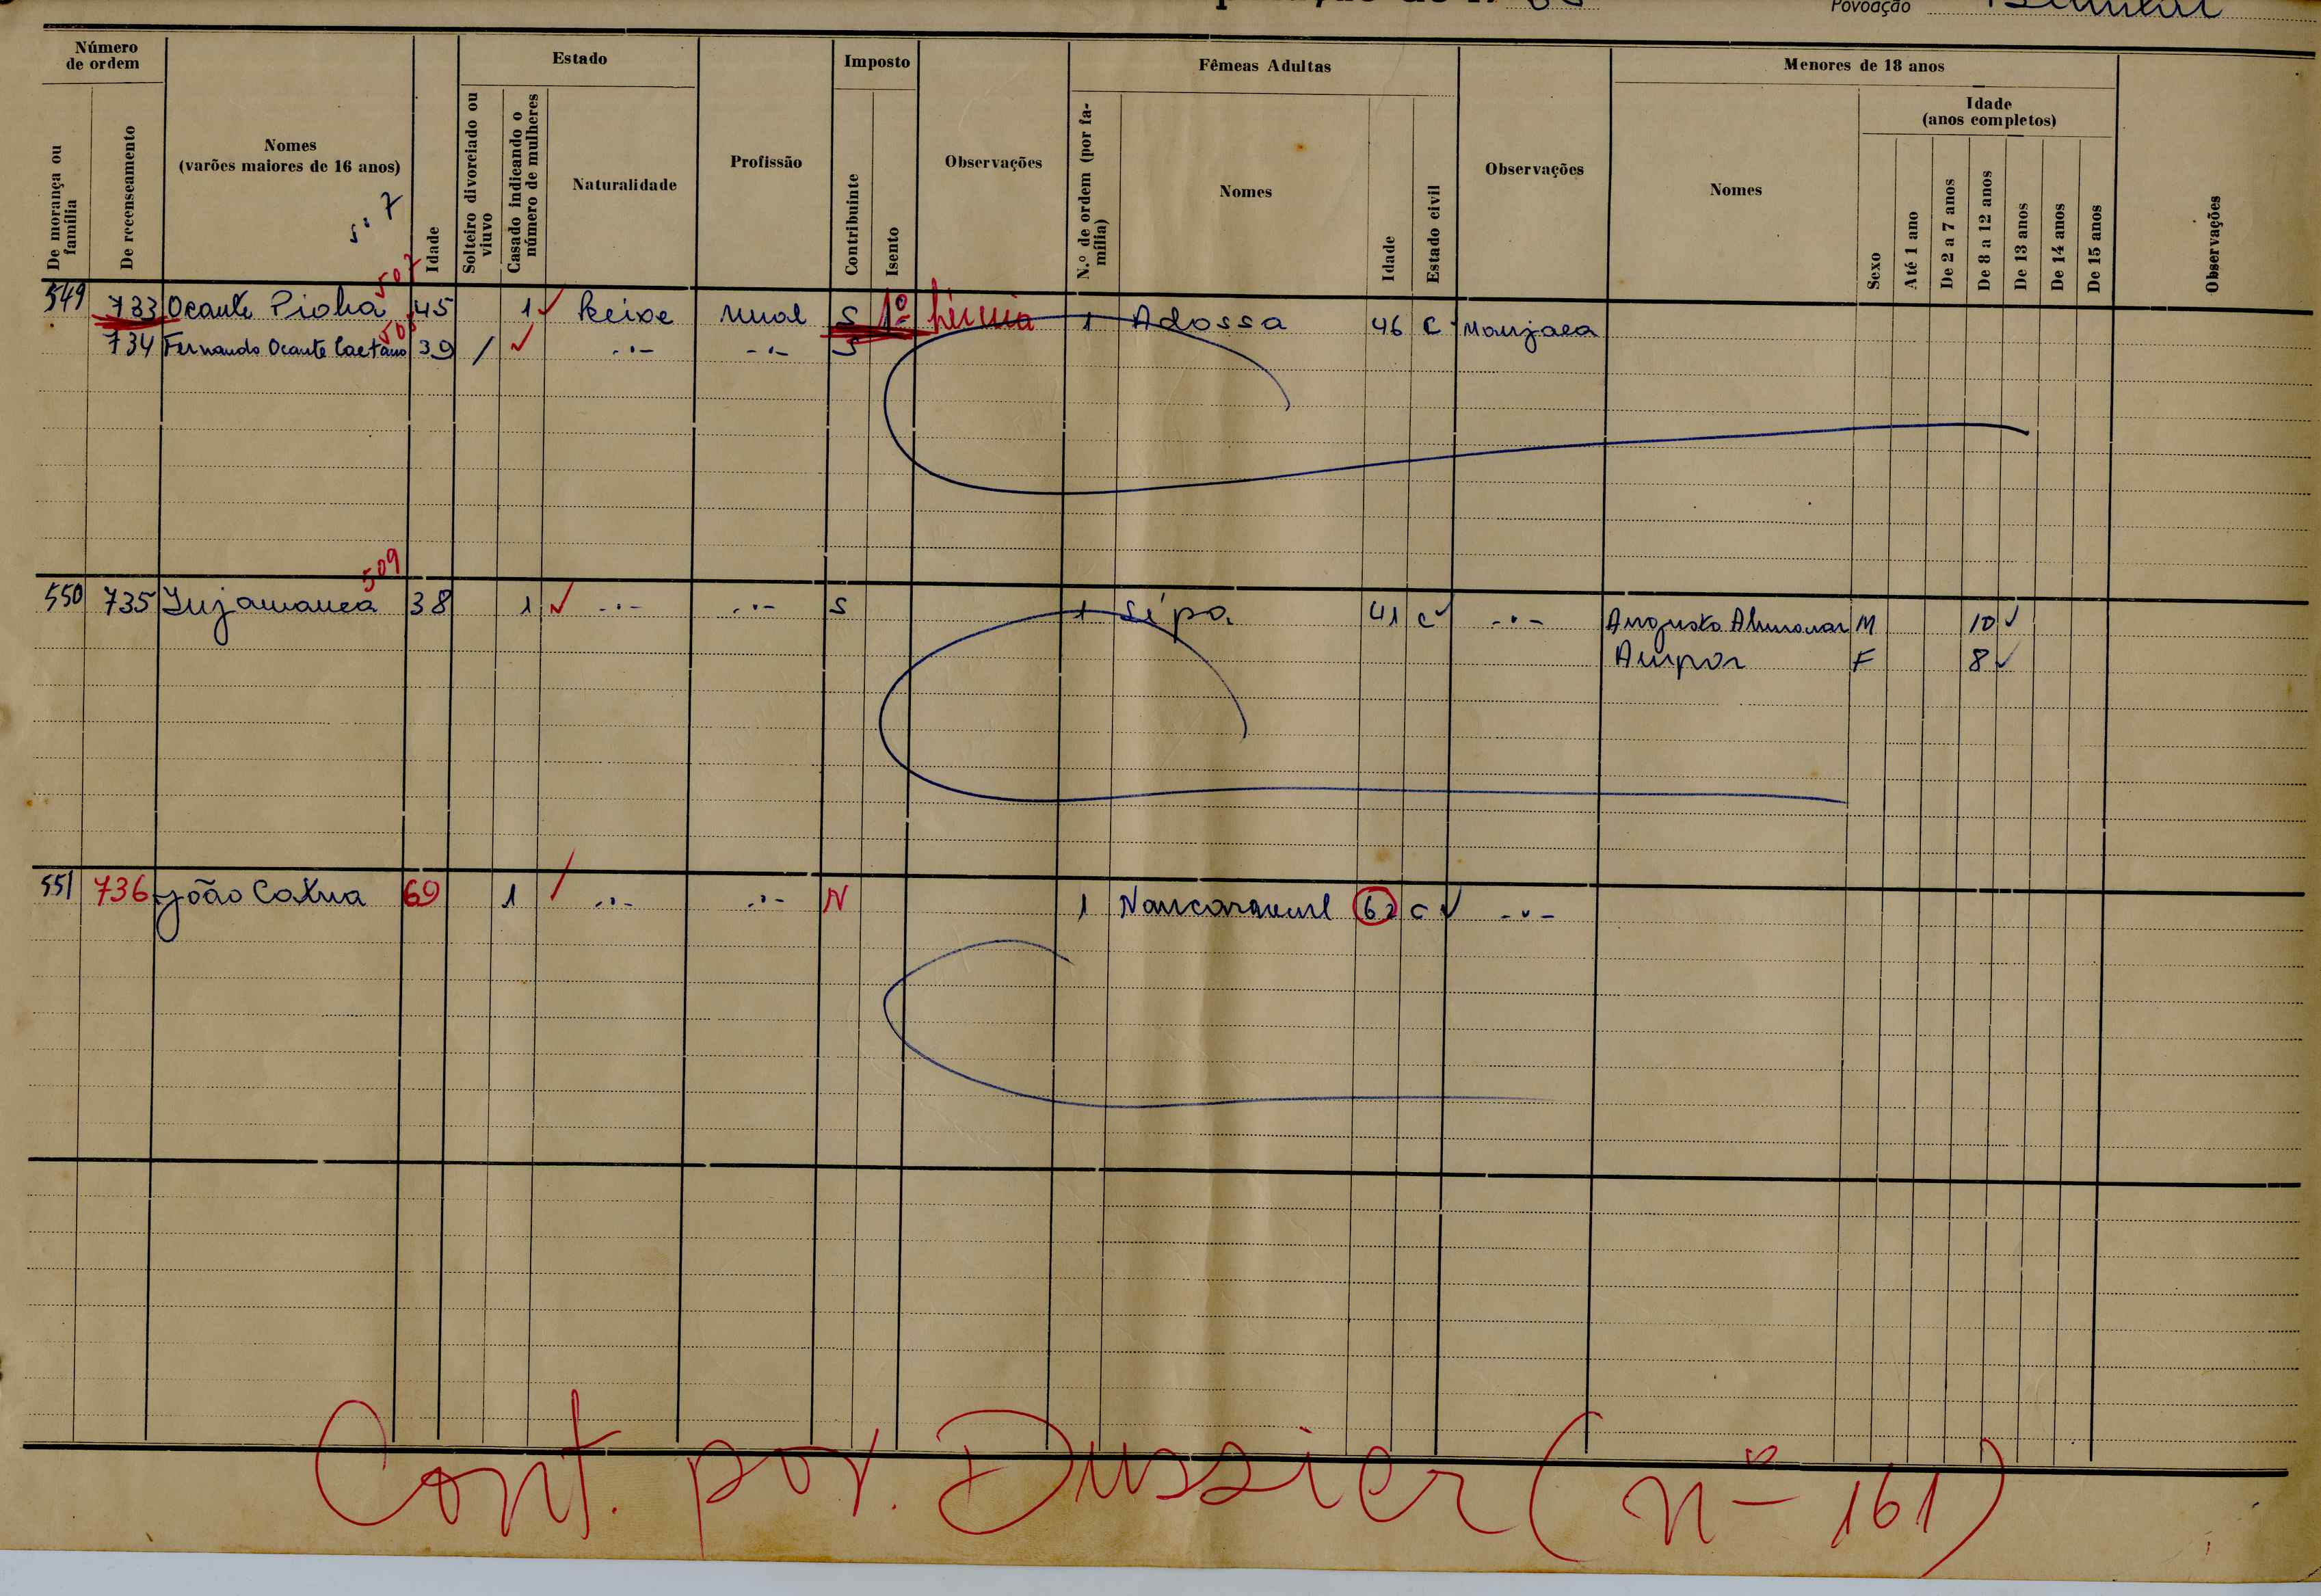 Povoação
Número de ordem
De morança ou família
De recenseamento
Nomes
(varões maiores de 16 anos)
Idade
Estado
Solteiro divorciado ou viuvo
Casado indicando o número de mulheres
Naturalidade
Profissão
Imposto
Contribuinte
Isento
Observações
Fêmeas Adultas
N.º de ordem (por família)
Nomes
Idade
Estado civil
Observações
Menores de 18 anos
Nomes
Sexo
Idade
(anos completos)
Até 1 ano
De 2 a 7 anos
De 8 a 12 anos
De 13 anos
De 14 anos
De 15 anos
Observações
507
549 733 Ocante Pioha 45 1 Peixe rural S 1º hérnia 1 Adossa 46 C Manjaca
734 Fernando Ocante Caetano 39 / -·- -·- S
509
550 735 38 1 -·- -·- S 1 Sépa 41 C -·- Augusto M 10
F 8
551 736 João Catua 69 1 -·- -·- N 1 62 C -·-
Cont. por. Dussier (nº 161)